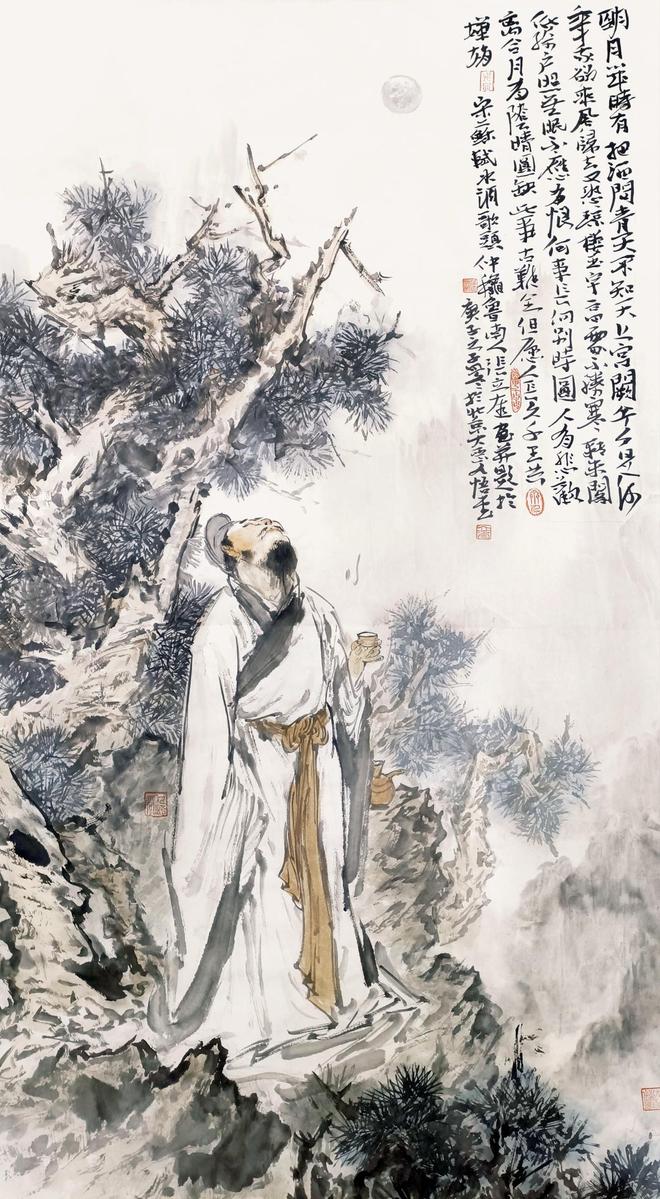 明月幾時有把酒問青天不知天上宮闕今夕是何
年我欲乘風歸去又恐瓊樓玉宇高處不勝寒轉朱閣
低綺戶照無眠不應有恨何事長向別時圓人有悲歡
離合月有陰晴圓缺此事古難全但願人長久千里共
嬋娟
宋蘇軾水調歌頭仲 魯南人張立 畫并題於
庚子之 於北京大